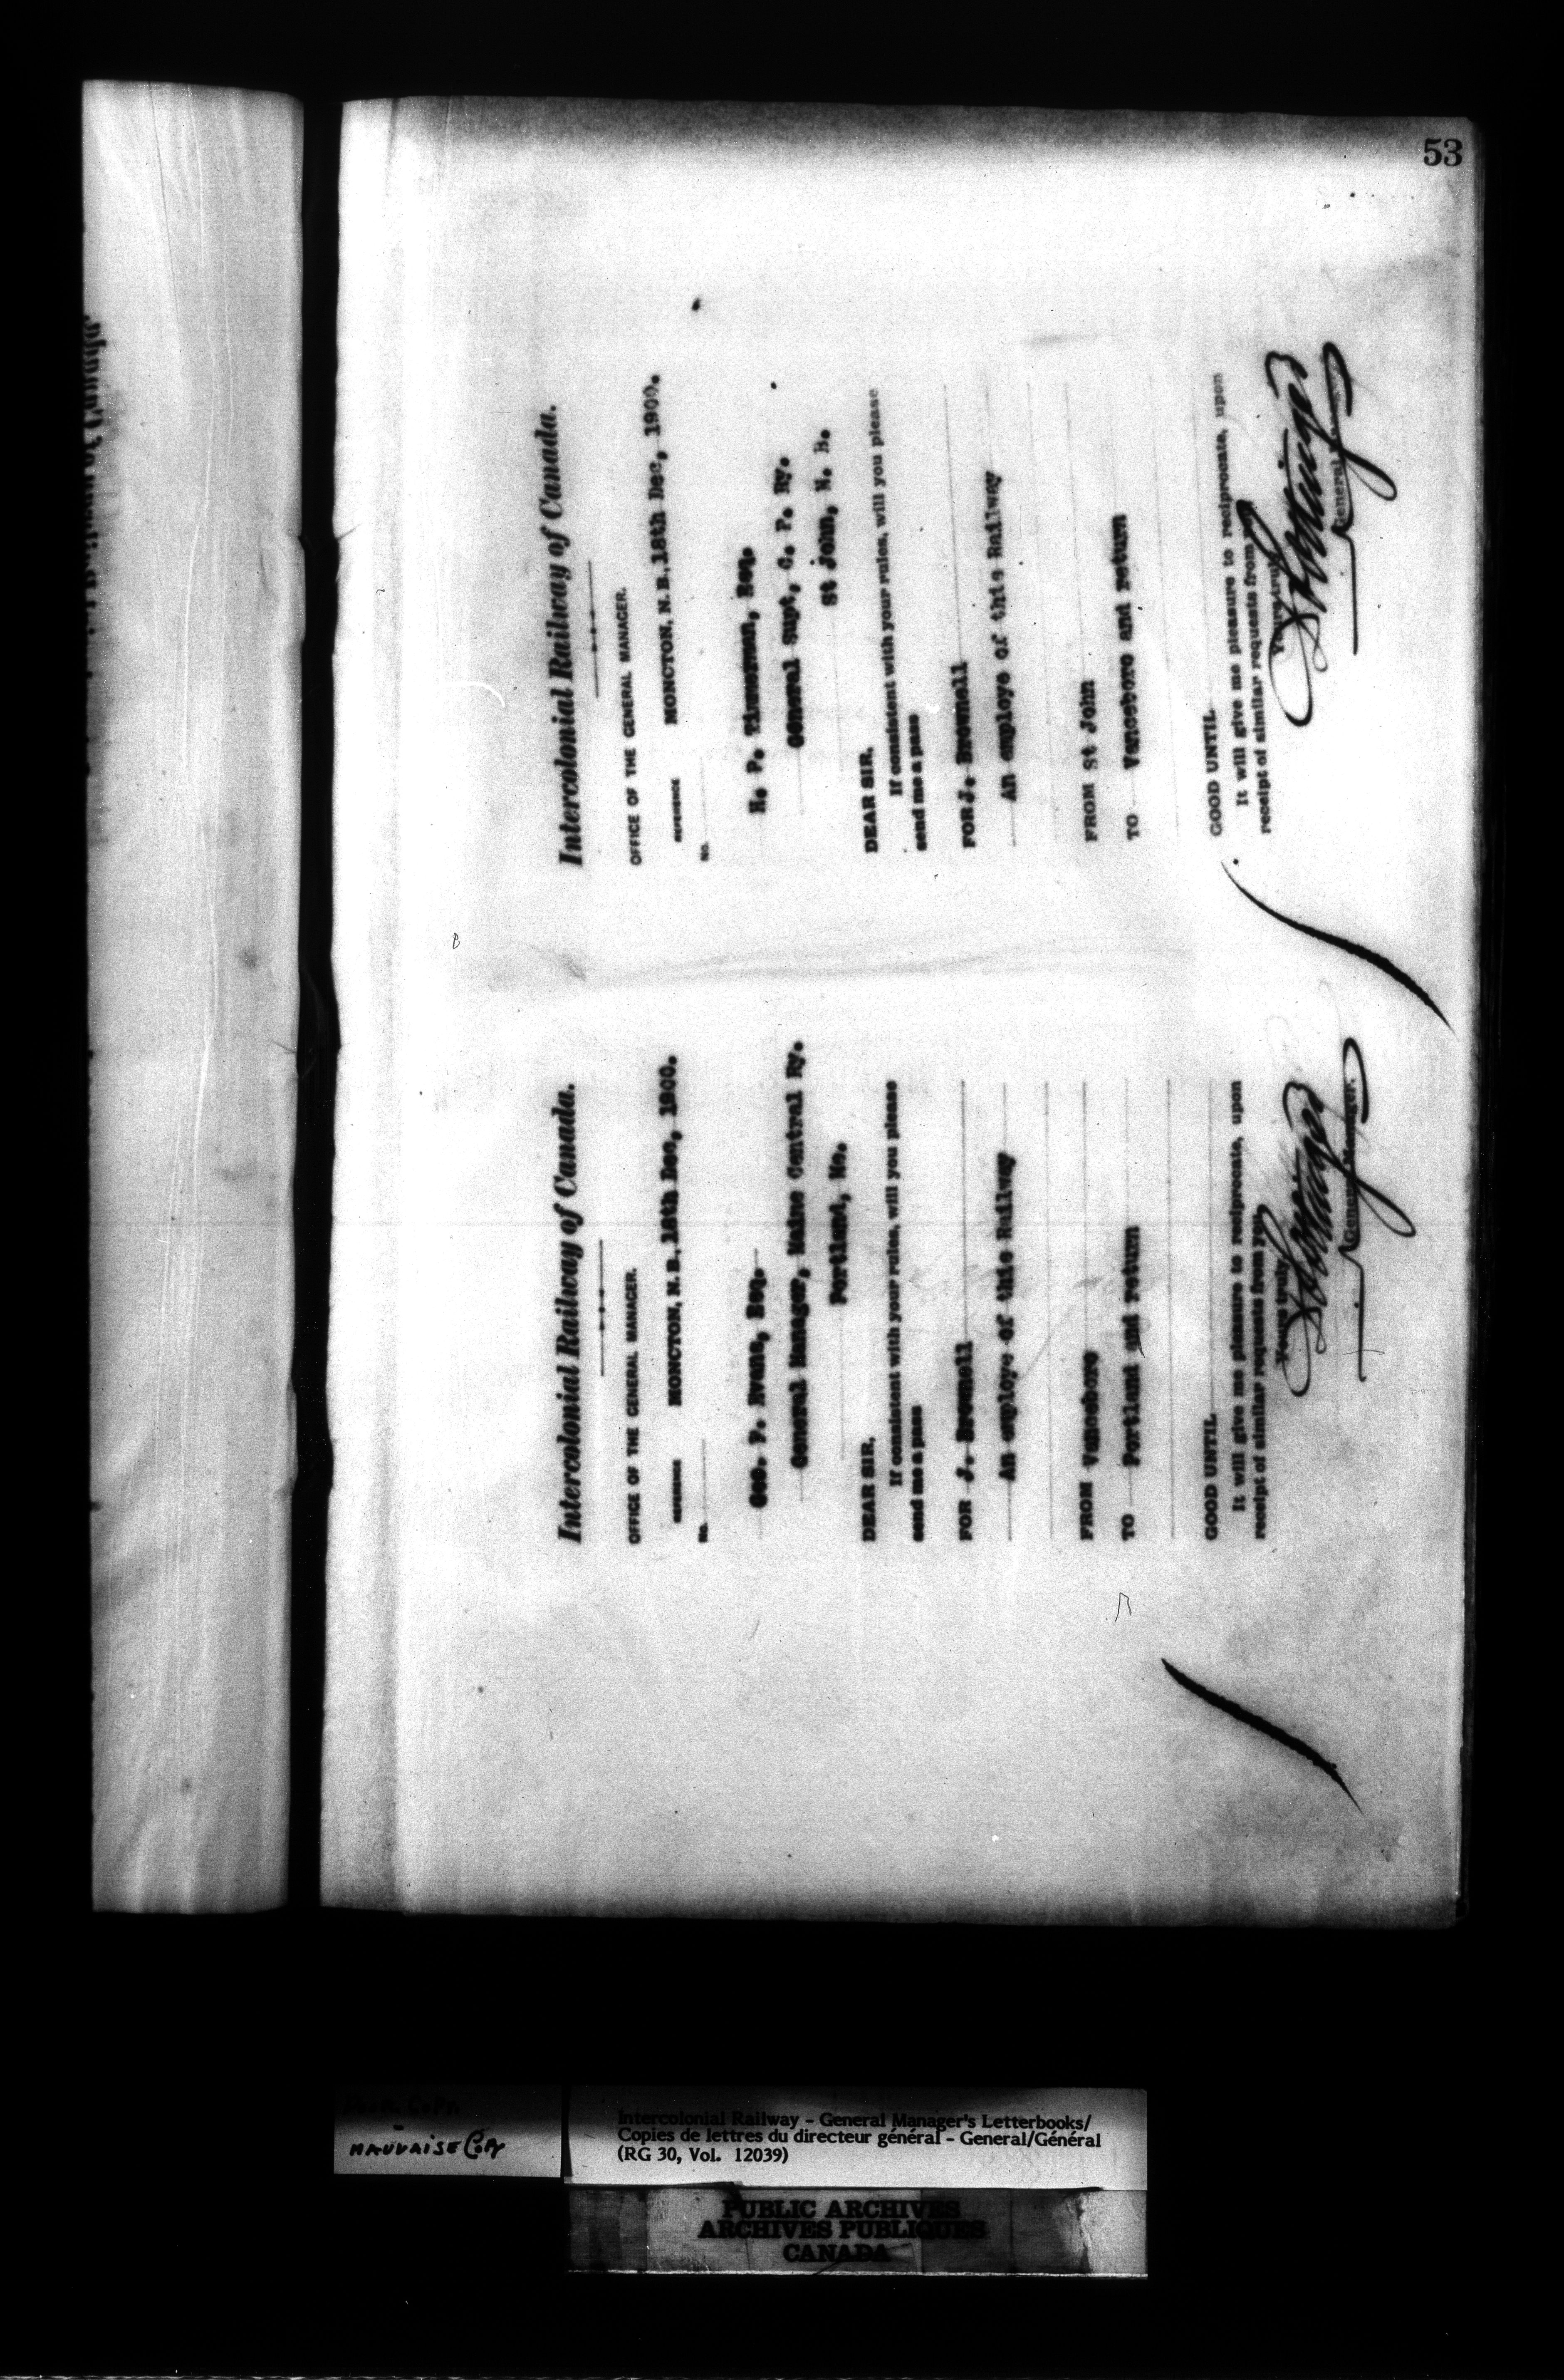 53
Intercolonial Railway of Canada.
OFFICE OF THE GENERAL MANAGER.
REFERENCE MONCTON, N. B. 18th Dec, 1900.
No.
Geo. F. Evans, Esq.
General Manager, Maine Central Ry.
Portland, Me.
DEAR SIR,
If consistent with your rules, will you please
send me a pass
FOR J. Brownell
An employe of this Railway
FROM Vanceboro
TO Portland and return
GOOD UNTIL
It will give me pleasure to reciprocate, upon
receipt of similar requests from you.
Yours truly,
General Manager.
Intercolonial Railway of Canada.
OFFICE OF THE GENERAL MANAGER.
REFERENCE MONCTON, N. B. 18th Dec, 1900.
No.
H. P. Timmerman, Esq.
General Supt, C. P. Ry.
St John, N. B.
DEAR SIR,
If consistent with your rules, will you please
send me a pass
FOR J. Brownell
An employe of this Railway
FROM St John
TO Vanceboro and return
GOOD UNTIL
It will give me pleasure to reciprocate, upon
receipt of similar requests from
Yours truly
General
MAUVAISE COPY
Intercolonial Railway - General Manager's Letterbooks/
Copies de lettres du directeur général - General/Général
(RG 30, Vol. 12039)
PUBLIC ARCHIVES
ARCHIVES PUBLIQUES
CANADA